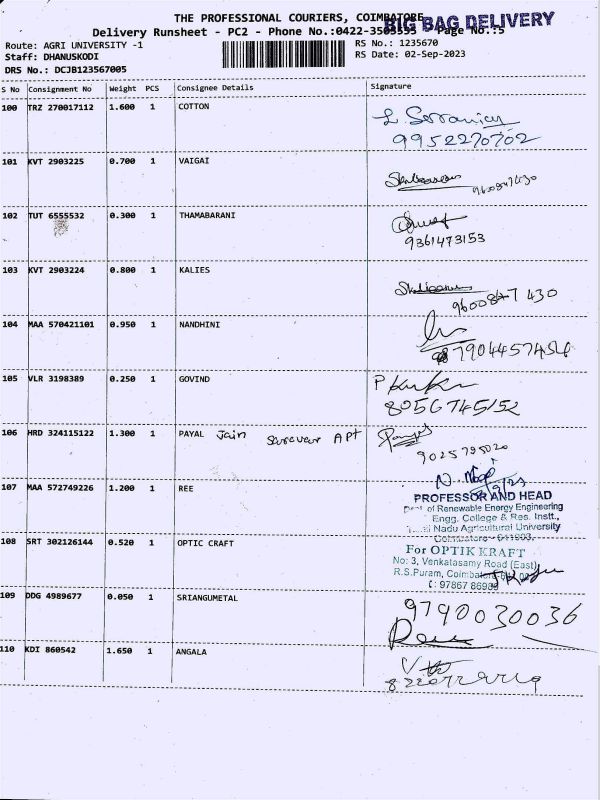 THE PROFESSIONAL COURIERS, COIMBATORE
BIG BAG DELIVERY
Delivery Runsheet - PC2 - Phone No.:0422-3503595 Page No.:5
Route: AGRI UNIVERSITY -1
Staff: DHANUSKODI
DRS No.: DCJB123567005
RS No.: 1235670
RS Date: 02-Sep-2023
S No Consignment No Weight PCS Consignee Details Signature
100 TRZ 270017112 1.600 1 COTTON
9952270702
101 KVT 2903225 0.700 1 VAIGAI
9600847430
102 TUT 6555532 0.300 1 THAMABARANI
9361473153
103 KVT 2903224 0.800 1 KALIES
9600847430
104 MAA 570421101 0.950 1 NANDHINI
7904457454
105 VLR 3198389 0.250 1 GOVIND
8056745152
106 HRD 324115122 1.300 1 PAYAL Jain APt
9025795020
107 MAA 572749226 1.200 1 REE
PROFESSOR AND HEAD
Dept. of Renewable Energy Engineering
Engg. College & Res. Instt.,
Nadu Agricultural University
Coimbatore - 641003.
108 SRT 302126144 0.520 1 OPTIC CRAFT
For OPTIK KRAFT
No: 3, Venkatasamy Road (East),
R.S.Puram, Coimbatore
: 97867
109 DDG 4989677 0.050 1 SRIANGUMETAL
9790030036
110 KDI 860542 1.650 1 ANGALA